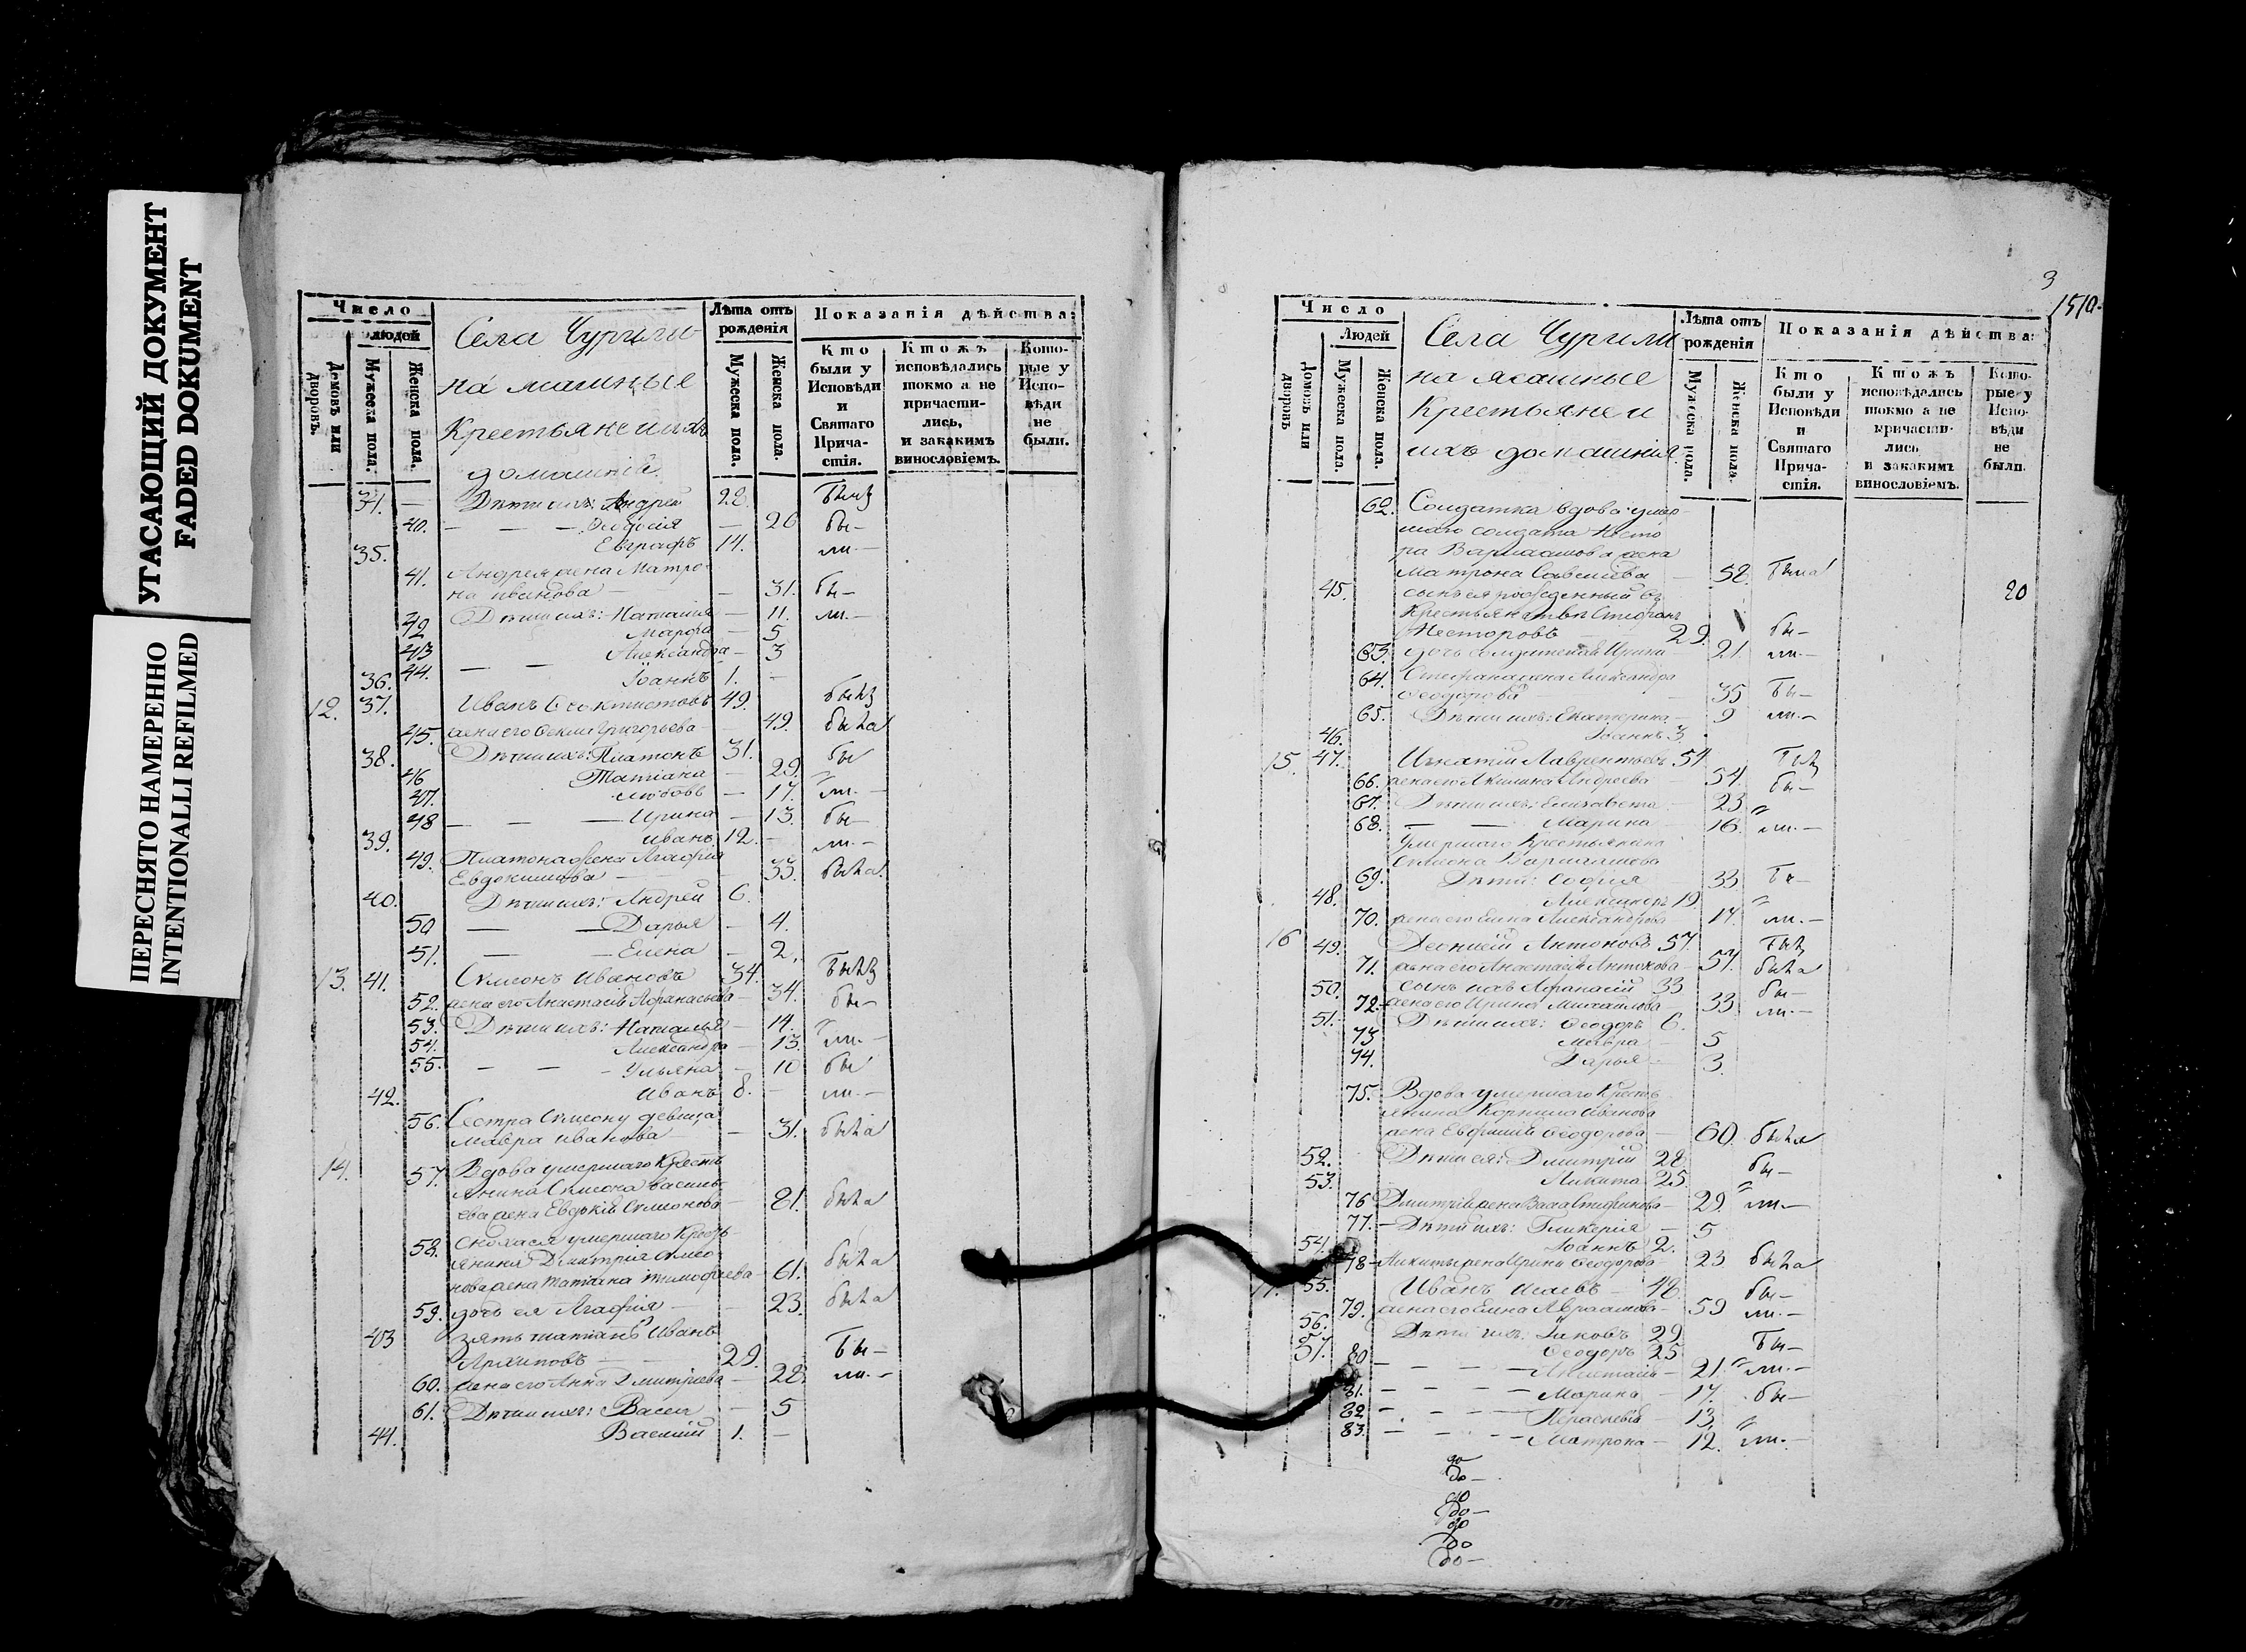 УГАСАЮЩИЙ ДОКУМЕНТ
FADED DOKUMENT
ПЕРЕСНЯТО НАМЕРЕННО
INTENTIONALLI REFILMED
Число
людей
Домовъ или дворовъ.
Мужеска пола.
Женска пола.
Села Чурили-
на
Крестьяне и ихъ
домашнiй
Лѣта отъ рожденiя
Мужеска пола.
Женска пола.
Показанiя дѣйства:
Кто были у Исповѣди и Святаго Прича-стiя.
Ктожъ исповѣдались токмо а не причасти-лись, и закакимъ винословiемъ.
Кото-рые у Испо-вѣди не были.
— Дѣти ихъ: Андрей 28.
40. — — — Ѳеодосiя — 26 бы—
35. Евграфъ 14. ли.—
41. Андрея жена Матро-
на Иванова — — 31. бы—
42 Дѣти ихъ: Наталiя — 11. ли.—
43 Марфа — 5
44. — — Александра — 3
36. Iоаннъ 1. —
12. 37. Иванъ Ѳеоктистовъ 49.
45. жена его Григорьева — 49. была
38. Дѣти ихъ: Платонъ 31. бы
46 Татiана — 29. "
47. Любовь — 17. ли. —
48 — — — Ирина — 13. бы—
39. Иванъ 12. — ли.—
49. Платона жена Агафiя
Евдокимова — — 33. была
40. Дѣти ихъ: Андрей 6.
50 — — Дарья — 4.
51. — — Елена — 2.
13. 41. Симеонъ Ивановъ 34.
52. жена его Анастасiя Афанасьева — 34. бы—
53. Дѣти ихъ: Наталья — 14. "
54. Александра — 13. ли.—
55. — — — Ульяна — 10 бы
42. Иванъ 8. — ли.—
56. Сестра Симеону девица
Мавра Иванова — — 31. была
14. 57. Вдова умершаго Кресть
янина Симеона Василь-
ева жена Евдокiя Симонова — 81. была
58. Сноха ся умершаго Кресть-
янина Димитрiя Симео-
нова жена Татiана Тимофеева — 61. была
59. дочь ея Агафiя — — 23. была
43 зять Иванъ
Архиповъ — 29. бы—
60. жена его Анна Дмитрiева — 28. ли.—
61. Дѣти ихъ: — 5
44. Василiй 1. —
3
1510.
Число
Людей
Домовъ или дворовъ
Мужеска пола.
Женска пола.
Села Чурили
на ясашные
Крестьяне и
ихъ домашнiя
Лѣта отъ рожденiя
Мужеска пола.
Женска пола.
Показанiя дѣйства:
Кто были у Исповѣди и Святаго Прича-стiя.
Ктожъ исповѣдались токмо а не причасти-лись и закакимъ винословiемъ.
Кото-рые у Испо-вѣди не были.
62. Солдатка вдова умер
шаго солдата Несто
ра жена
Матрона Савельева — 58. была
45. сынъ ея рожденный въ 20
Крестьянствѣ Стефанъ
Несторовъ 29. бы—
63. дочь Ирина — 21. ли.—
64. Стефана жена Александра
Ѳеодорова — 35 бы—
65. Дѣти ихъ: Екатерина — 9 ли.—
46. Iоаннъ 3.
15. 47. Игнатiй Лаврентьевъ 54
66. жена его Акилина Андреева — 54. бы—
67. Дѣти ихъ: Елисавета — 23. "
68. — — Марина — 16. ли.—
Умершаго Крестьянина
Симеона
69. Дѣти: Софiя — 33 бы—
48. 19. "
70. жена его Елена Александрова 17. ли.—
16 49. Антоновъ 57.
71. жена его Анастасiя Антонова — 57. была
50. сынъ ихъ Афанасiй 33 бы—
72. жена его Ирина Михайлова 33 ли.—
51. Дѣти ихъ: Ѳеодоръ 6.
73 Мавра — 5
74. Дарья — 3.
75. Вдова умершаго Кресть
янина Корнила Иванова
жена Евфимiя Ѳеодорова — 60. была
52. Дѣти ея: Дмитрiй 28 бы—
53. Никита 25 "
76 Дмитрiя жена Васса Стефанова — 29. ли.—
77. — Дѣти ихъ: Гликерiя — 5
54. Iоаннъ 2.
78 — Никиты жена Ирина Ѳеодорова — 23 была
17. 55. Иванъ Исаевъ — 48. бы—
79. жена его Елена Авраамова — 59 ли.—
56. Дѣти ихъ: Iаковъ 29.
57. Ѳеодоръ 25 бы—
80 — — — — Анастасiя — 21. " ли.—
81. — — — — Марина — 17. бы—
82 — — — — Параскевiя — 13. "
83. — — — — Матрона — 12. ли.—